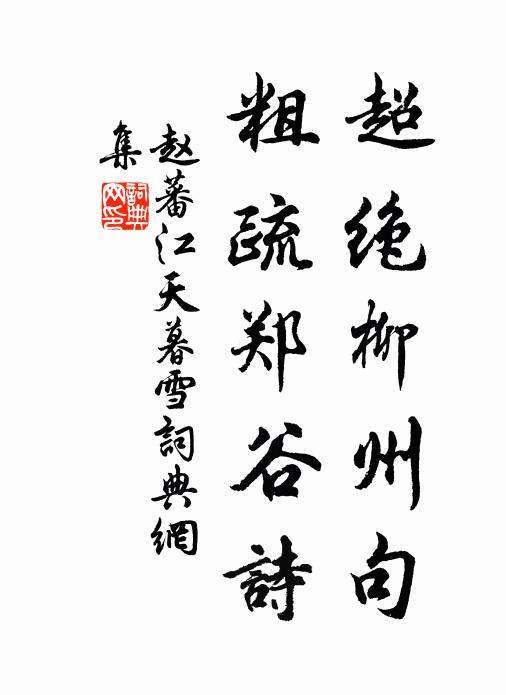 超绝柳州句
粗疏郑谷詩
赵蕃江天暮雪詞典網
集
詞典网印